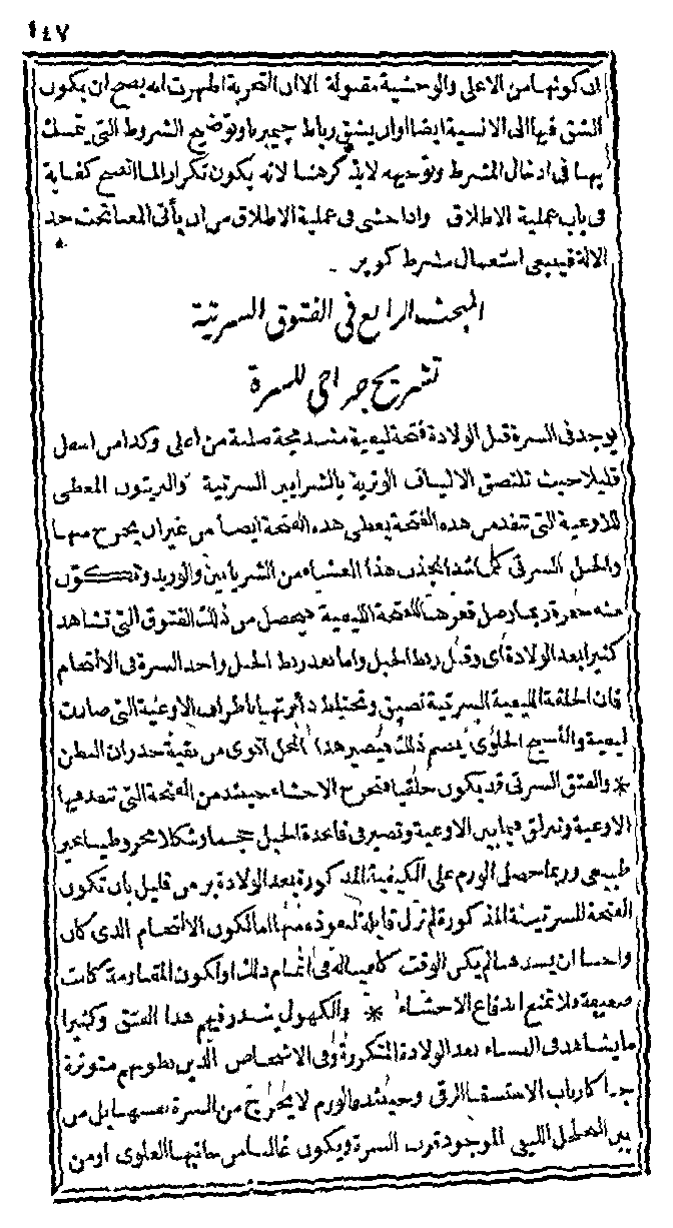 ١٤٧
ان كونها من الاعلى والوحشية مقبولة الا ان التجربة اظهرت انه يصح ان يكون
الشق فيها الى الانسية ايضا او ان يشق رباط جيمبرنا وتوضيح الشروط التى يتمسك
بها فى ادخال المشرط وتوجيهه لا يذكر هنا لانه يكون تكرارا لما اتضح كفاية
فى باب عملية الاطلاق واذا خشى فى عملية الاطلاق من ان يأتى المعا تحت حد
الالة فينبغى استعمال مشرط كوبر
المبحث الرابع فى الفتوق السرتية
تشريح جراحى للسرة
يوجد فى السرة قبل الولادة فتحة ليفية مندمجة صلبة من اعلى وكذا من اسفل
قليلا حيث تلتصق الالياف الوترية بالشرايين السرتية والبريتون المغطى
للاوعية التى تنفذ من هذه الفتحة يغطى هذه الفتحة ايضا من غير ان يخرج منها
والحبل السرتى كلما اشتد انجذب هذا الغشاء من الشريانين والوريد وتتكون
منه حفرة ربما وصل قعرها للفتحة الليفية فيحصل من ذلك الفتوق التى تشاهد
كثيرا بعد الولادة اى وقبل ربط الحبل واما بعد ربط الحبل واخذ السرة فى الالتحام
فان الحلقة الليفية السرتية تضيق وتختلط دائرتها باطراف الاوعية التى صارت
ليفية والنسيج الخلوى ينضم ذلك فيصير هذا المحل اقوى من بقية جدران البطن
* والفتق السرتى قد يكون خلقيا فتخرج الاحشاء حينئذ من الفتحة التى تنفذ فيها
الاوعية وتنزلق فيما بين الاوعية وتصير فى قاعدة الحبل حجما وشكلا مخروطيا غير
طبيعى وربما حصل الورم على الكيفية المذكورة بعد الولادة بزمن قليل بان تكون
الفتحة السرتية المذكورة لم تزل قابلة للنفوذ منها اما لكون الالتحام الذى كان
واجبا ان يسدها لم يكن الوقت كافيا له فى اتمام ذلك او لكون المقاومة كانت
ضعيفة فلا تمنع اندفاع الاحشاء * والكهول يندر فيهم هذا الفتق وكثيرا
ما يشاهد فى النساء بعد الولادة المتكررة وفى الاشخاص الذين بطونهم متوترة
جدا كارباب الاستسقا الزقى وحينئذ فالورم لا يخرج من السرة نفسها بل من
بين التخلخل الليفى الموجود قرب السرة ويكون غالبا من حافتها العلوى او من